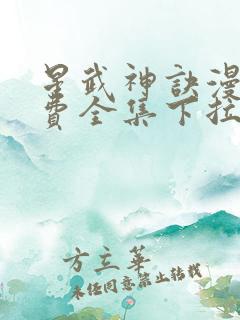 星武神訣漫
費全集下拉
方立華
未經同意禁止轉載